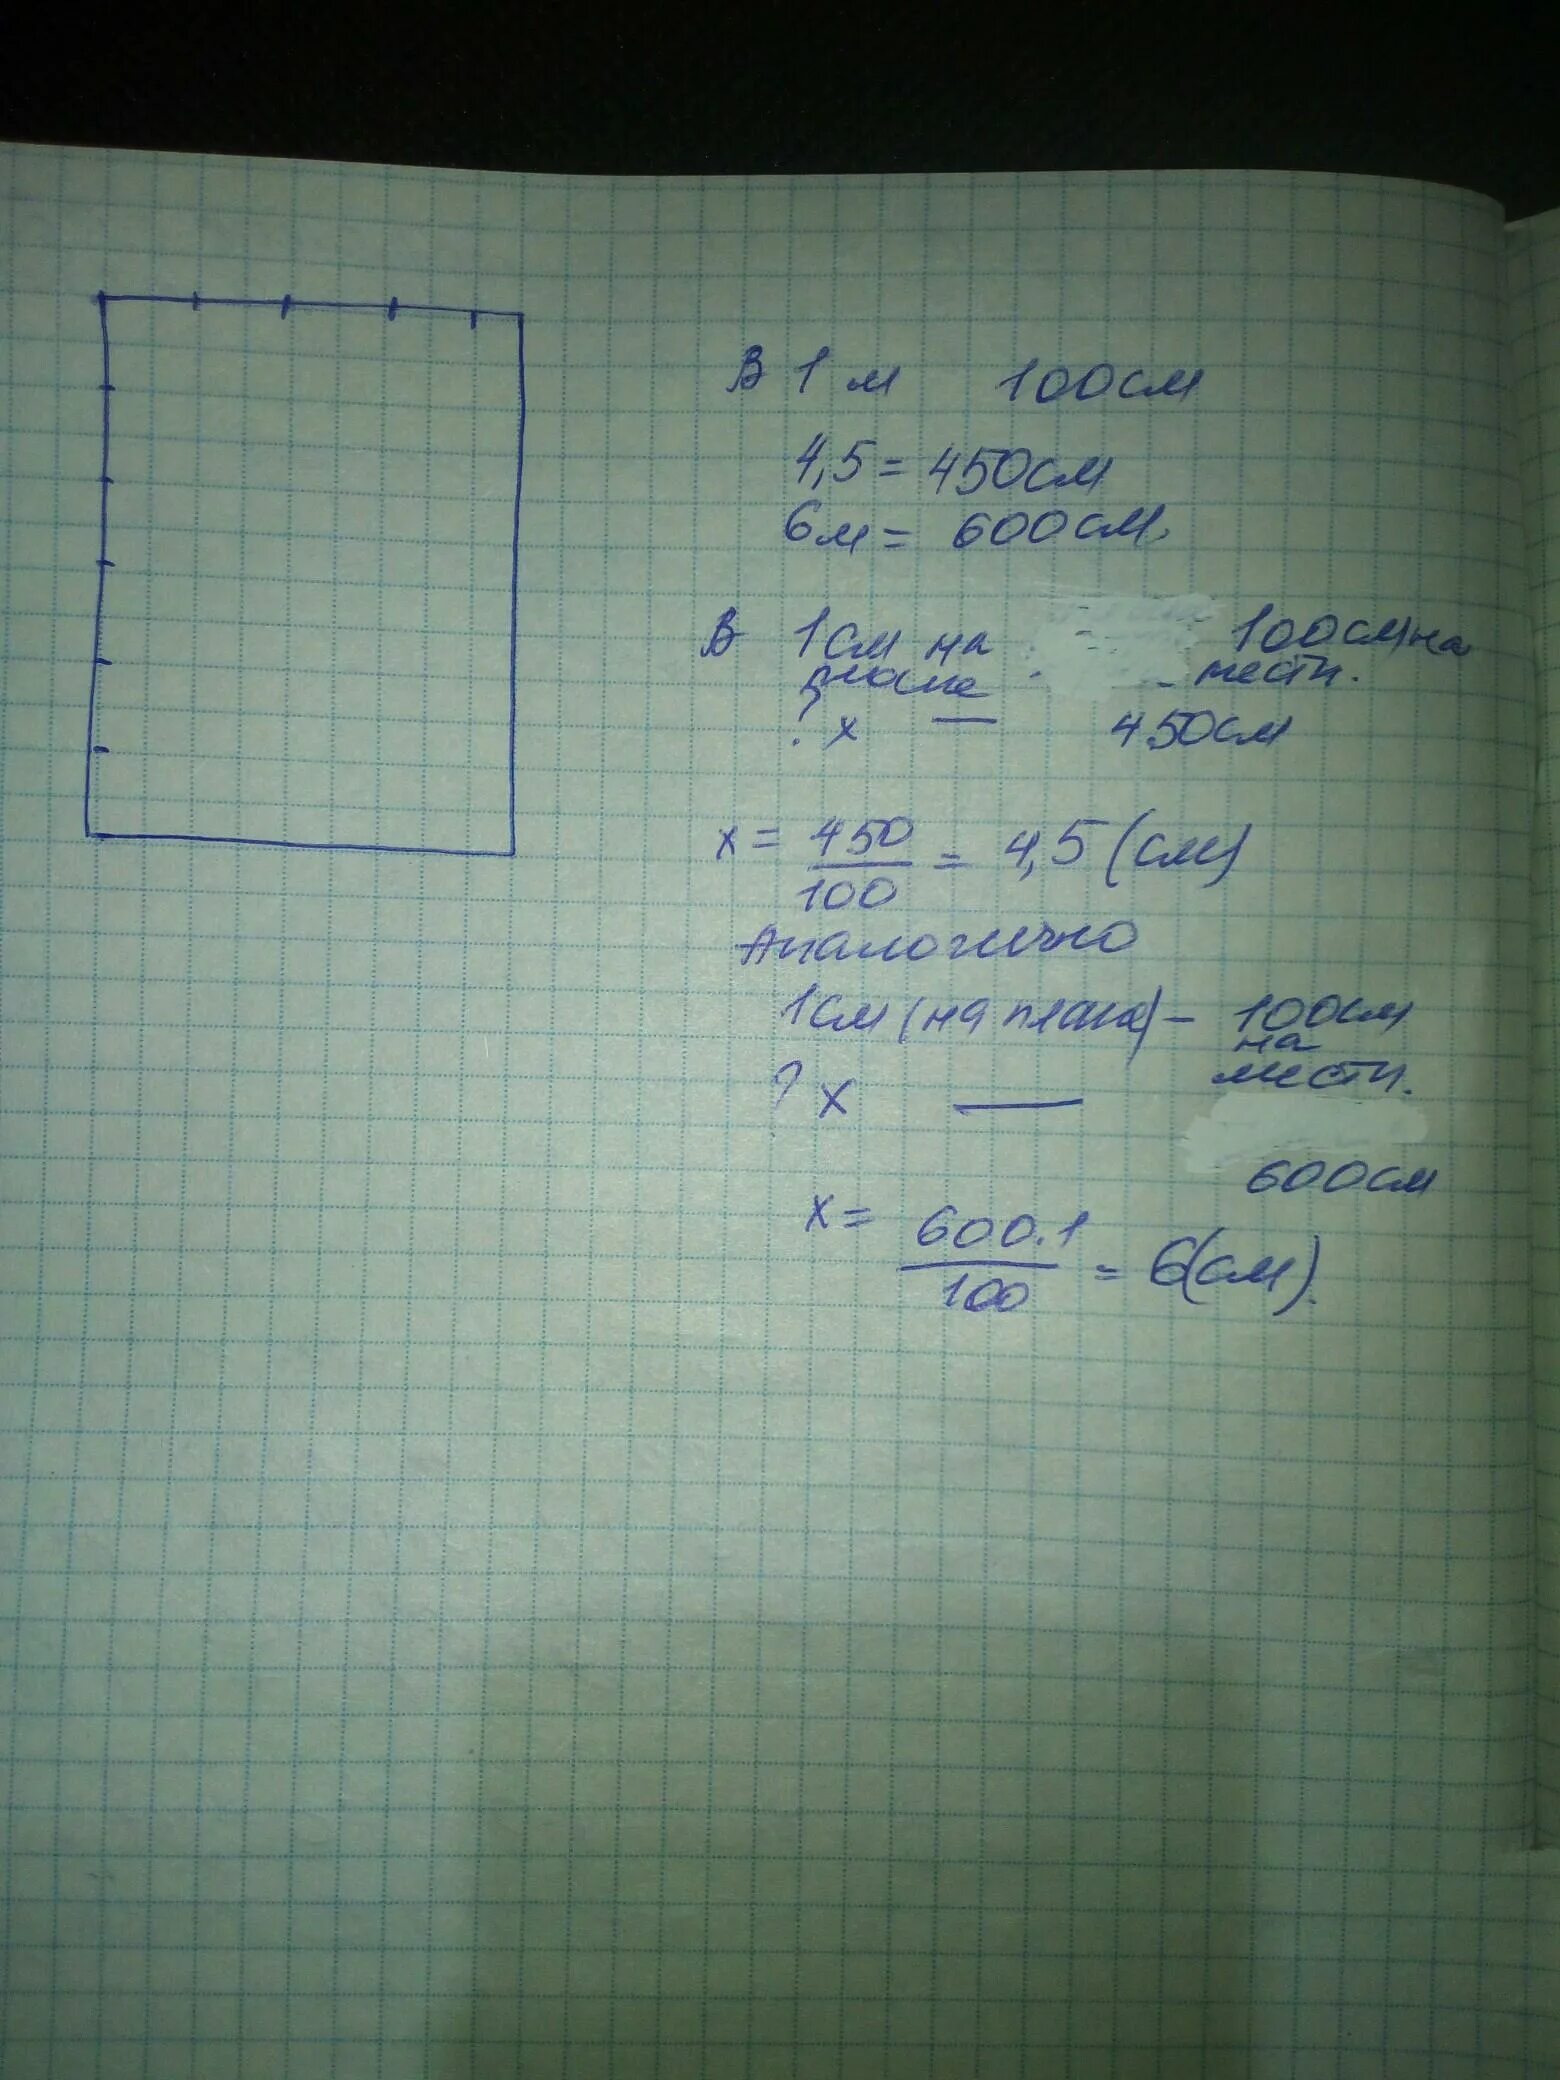 В 1 м 100см
4,5 = 450см
6м = 600см.
В 1см на 100см на
плане - местн.
? х — 450см
х = 450/100 = 4,5 (см)
Аналогично
1см (на плане) - 100см
на
местн.
? х —
600см
х = 600.1/100 = 6(см).